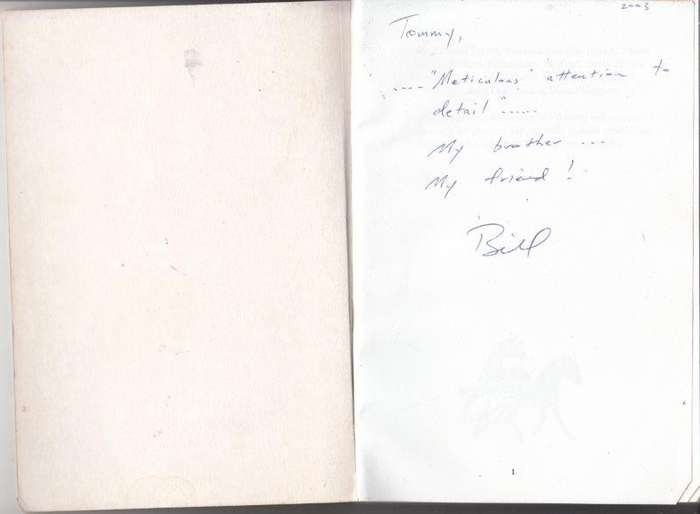 2003
Tommy,
...."Meticulous attention to
detail".....
My brother ...
My friend!
Bill
1